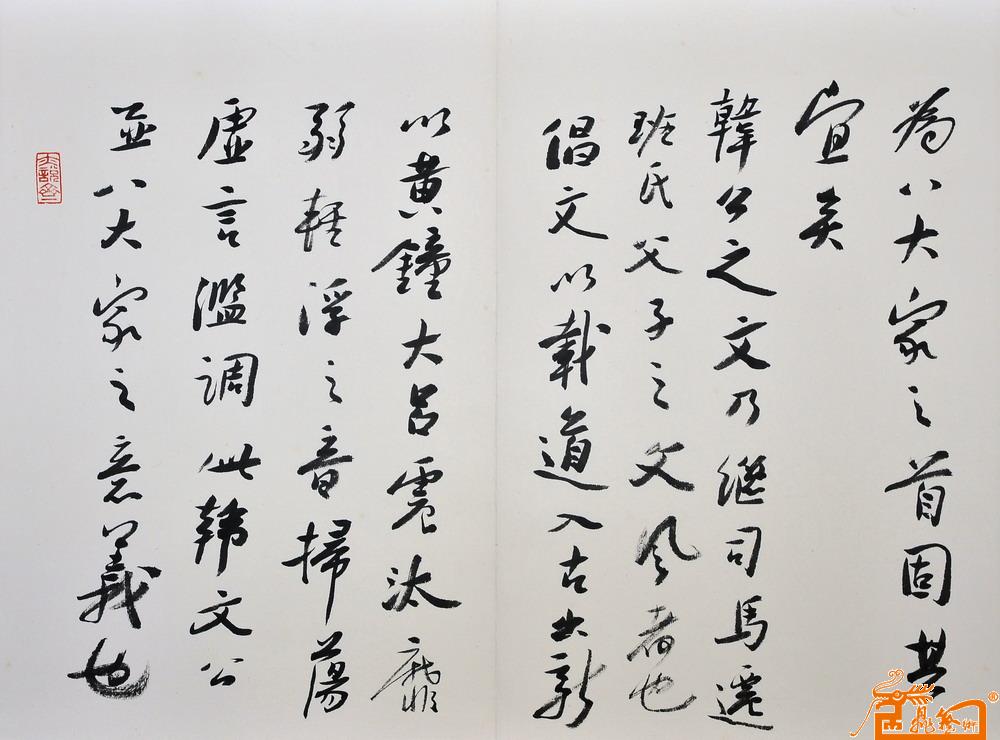 為八大家之首固其
宜矣
韓公之文乃繼司馬遷
班氏父子之文風者也
倡文以載道入古出新
以黄鐘大呂震汰靡
弱輕浮之音掃蕩
虛言濫調此韩文公
並八大家之意義也